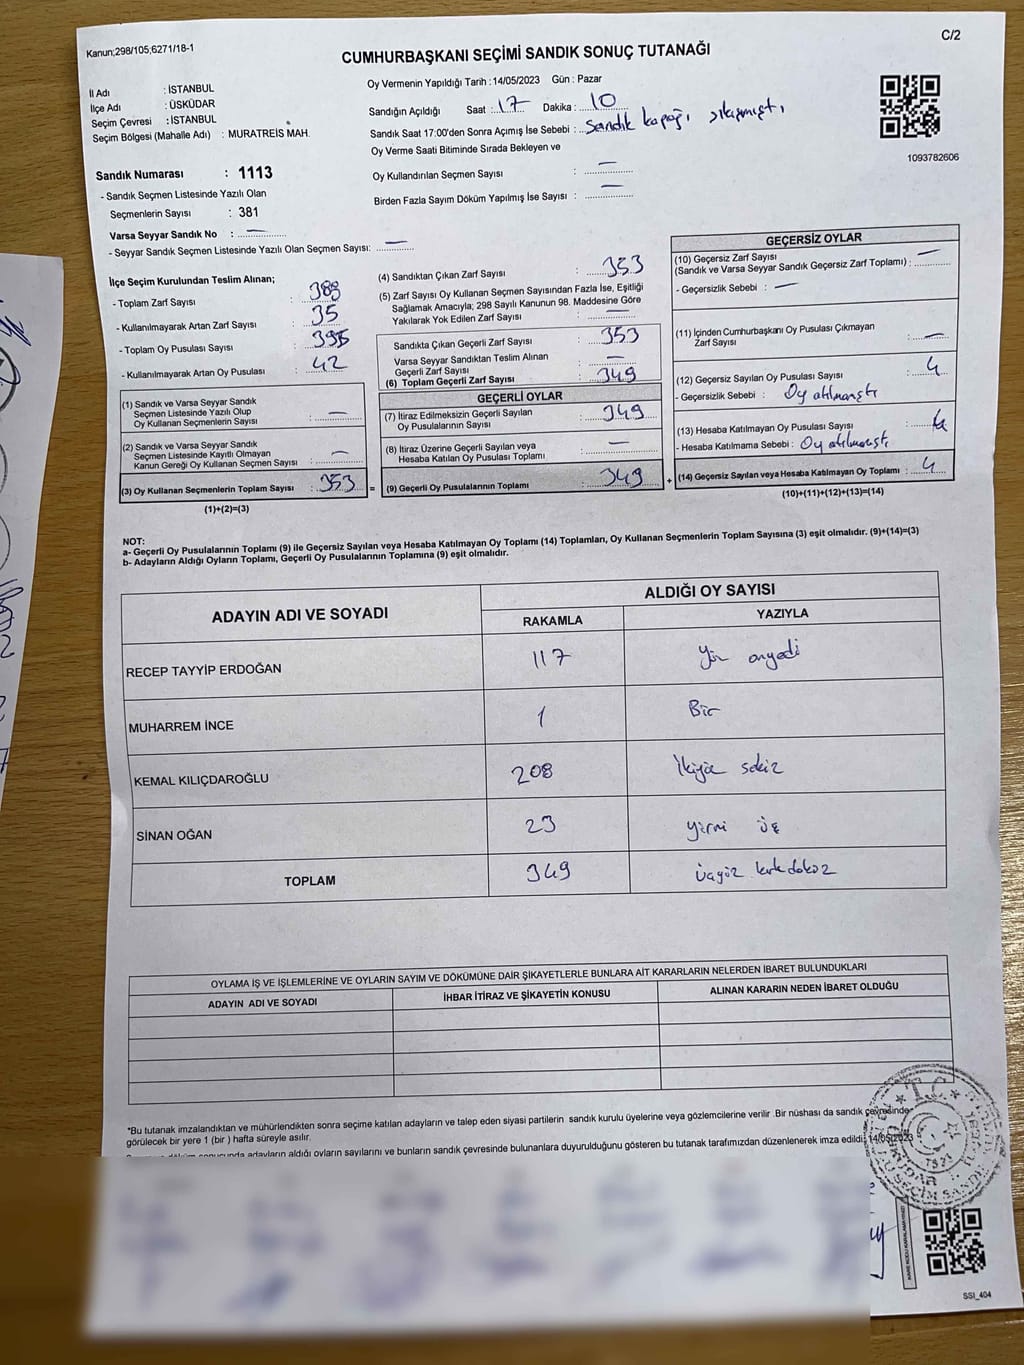 Kanun;298/105;6271/18-1
C/2
CUMHURBAŞKANI SEÇİMİ SANDIK SONUÇ TUTANAĞI
İl Adı : İSTANBUL
İlçe Adı : ÜSKÜDAR
Seçim Çevresi : İSTANBUL
Seçim Bölgesi (Mahalle Adı) : MURATREİS MAH.
Sandık Numarası : 1113
- Sandık Seçmen Listesinde Yazılı Olan
Seçmenlerin Sayısı : 381
Varsa Seyyar Sandık No : —
- Seyyar Sandık Seçmen Listesinde Yazılı Olan Seçmen Sayısı: —
Oy Vermenin Yapıldığı Tarih : 14/05/2023 Gün : Pazar
Sandığın Açıldığı Saat : 17 Dakika : 10
Sandık Saat 17:00'den Sonra Açımış İse Sebebi : Sandık kapağı sıkışmıştı
Oy Verme Saati Bitiminde Sırada Bekleyen ve
Oy Kullandırılan Seçmen Sayısı : —
Birden Fazla Sayım Döküm Yapılmış İse Sayısı : —
1093782606
İlçe Seçim Kurulundan Teslim Alınan;
- Toplam Zarf Sayısı : 388
- Kullanılmayarak Artan Zarf Sayısı : 35
- Toplam Oy Pusulası Sayısı : 395
- Kullanılmayarak Artan Oy Pusulası : 42
(1) Sandık ve Varsa Seyyar Sandık
Seçmen Listesinde Yazılı Olup
Oy Kullanan Seçmenlerin Sayısı : —
(2) Sandık ve Varsa Seyyar Sandık
Seçmen Listesinde Kayıtlı Olmayan
Kanun Gereği Oy Kullanan Seçmen Sayısı : —
(3) Oy Kullanan Seçmenlerin Toplam Sayısı : 353 =
(1)+(2)=(3)
(4) Sandıktan Çıkan Zarf Sayısı : 353
(5) Zarf Sayısı Oy Kullanan Seçmen Sayısından Fazla İse, Eşitliği
Sağlamak Amacıyla; 298 Sayılı Kanunun 98. Maddesine Göre
Yakılarak Yok Edilen Zarf Sayısı : —
Sandıkta Çıkan Geçerli Zarf Sayısı : 353
Varsa Seyyar Sandıktan Teslim Alınan
Geçerli Zarf Sayısı : —
(6) Toplam Geçerli Zarf Sayısı : 349
GEÇERLİ OYLAR
(7) İtiraz Edilmeksizin Geçerli Sayılan
Oy Pusulalarının Sayısı : 349
(8) İtiraz Üzerine Geçerli Sayılan veya
Hesaba Katılan Oy Pusulası Toplamı : —
(9) Geçerli Oy Pusulalarının Toplamı : 349 +
GEÇERSİZ OYLAR
(10) Geçersiz Zarf Sayısı
(Sandık ve Varsa Seyyar Sandık Geçersiz Zarf Toplamı) : —
- Geçersizlik Sebebi : —
(11) İçinden Cumhurbaşkanı Oy Pusulası Çıkmayan
Zarf Sayısı : —
(12) Geçersiz Sayılan Oy Pusulası Sayısı : 4
- Geçersizlik Sebebi : Oy atılmamıştı
(13) Hesaba Katılmayan Oy Pusulası Sayısı :
- Hesaba Katılmama Sebebi : Oy atılmamıştı
(14) Geçersiz Sayılan veya Hesaba Katılmayan Oy Toplamı : 4
(10)+(11)+(12)+(13)=(14)
NOT:
a- Geçerli Oy Pusulalarının Toplamı (9) ile Geçersiz Sayılan veya Hesaba Katılmayan Oy Toplamı (14) Toplamları, Oy Kullanan Seçmenlerin Toplam Sayısına (3) eşit olmalıdır. (9)+(14)=(3)
b- Adayların Aldığı Oyların Toplamı, Geçerli Oy Pusulalarının Toplamına (9) eşit olmalıdır.
ADAYIN ADI VE SOYADI
ALDIĞI OY SAYISI
RAKAMLA YAZIYLA
RECEP TAYYİP ERDOĞAN 117 Yüz onyedi
MUHARREM İNCE 1 Bir
KEMAL KILIÇDAROĞLU 208 İkiyüz sekiz
SİNAN OĞAN 23 yirmi üç
TOPLAM 349 üçyüz kırkdokuz
OYLAMA İŞ VE İŞLEMLERİNE VE OYLARIN SAYIM VE DÖKÜMÜNE DAİR ŞİKAYETLERLE BUNLARA AİT KARARLARIN NELERDEN İBARET BULUNDUKLARI
ADAYIN ADI VE SOYADI İHBAR İTİRAZ VE ŞİKAYETİN KONUSU ALINAN KARARIN NEDEN İBARET OLDUĞU
*Bu tutanak imzalandıktan ve mühürlendikten sonra seçime katılan adayların ve talep eden siyasi partilerin sandık kurulu üyelerine veya gözlemcilerine verilir .Bir nüshası da sandık çevresinde
görülecek bir yere 1 (bir ) hafta süreyle asılır.
sonucunda adayların aldığı oyların sayılarını ve bunların sandık çevresinde bulunanlara duyurulduğunu gösteren bu tutanak tarafımızdan düzenlenerek imza edildi. 14/05/2023
T.C.
SSI_404